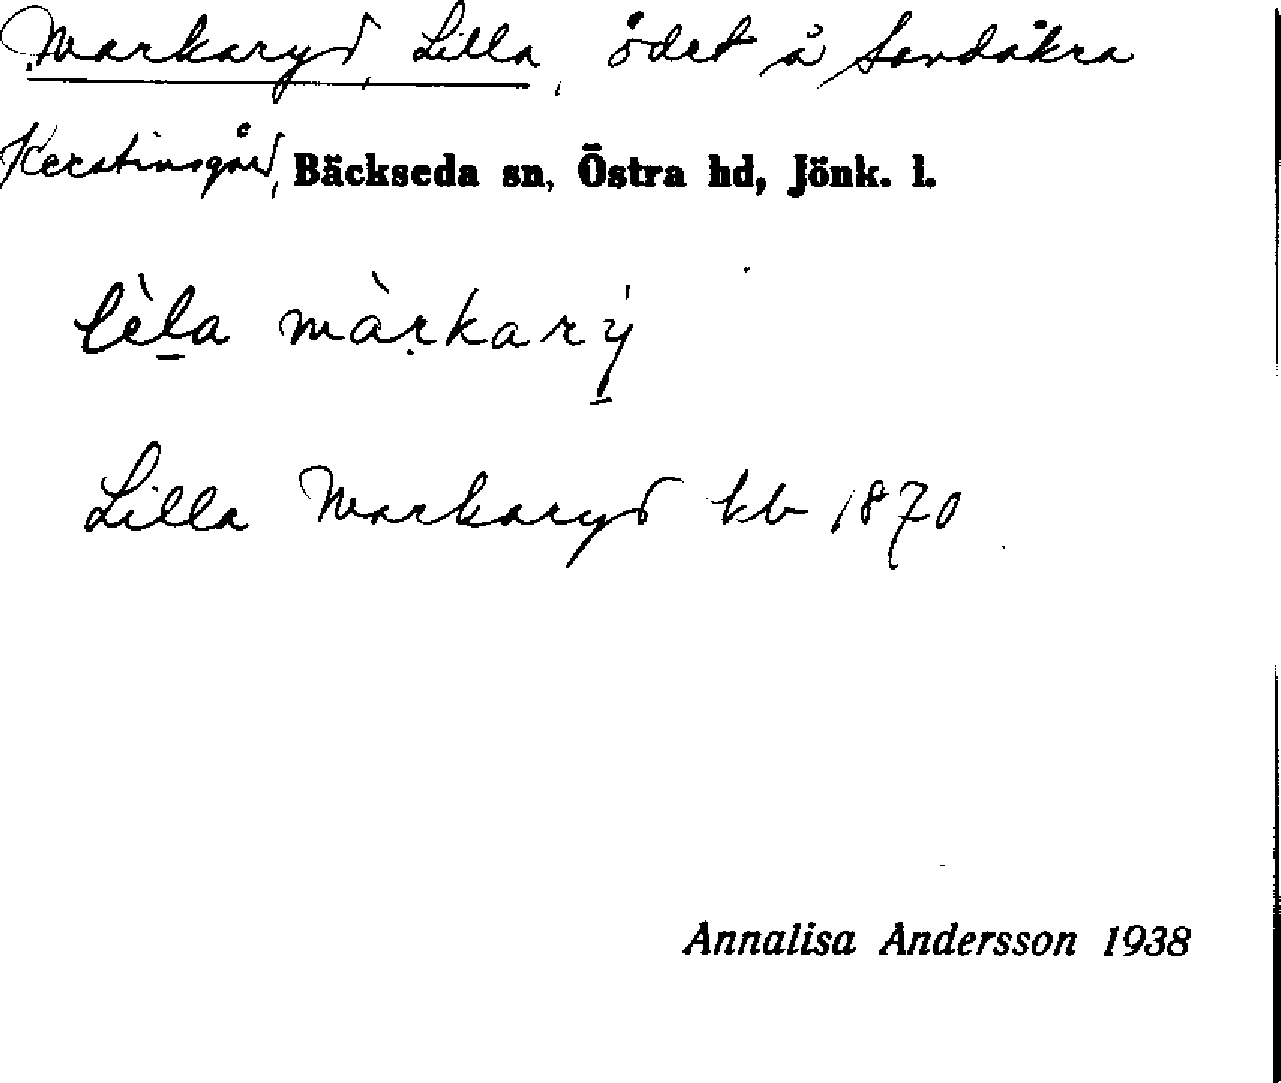 Markaryd, Lilla, ödet å Sandåkra
Kerstinsgård, Bäckseda sn, Östra hd, Jönk. l.
lèla màrkarý
Lilla Markaryd kb 1870
Annalisa Andersson 1938